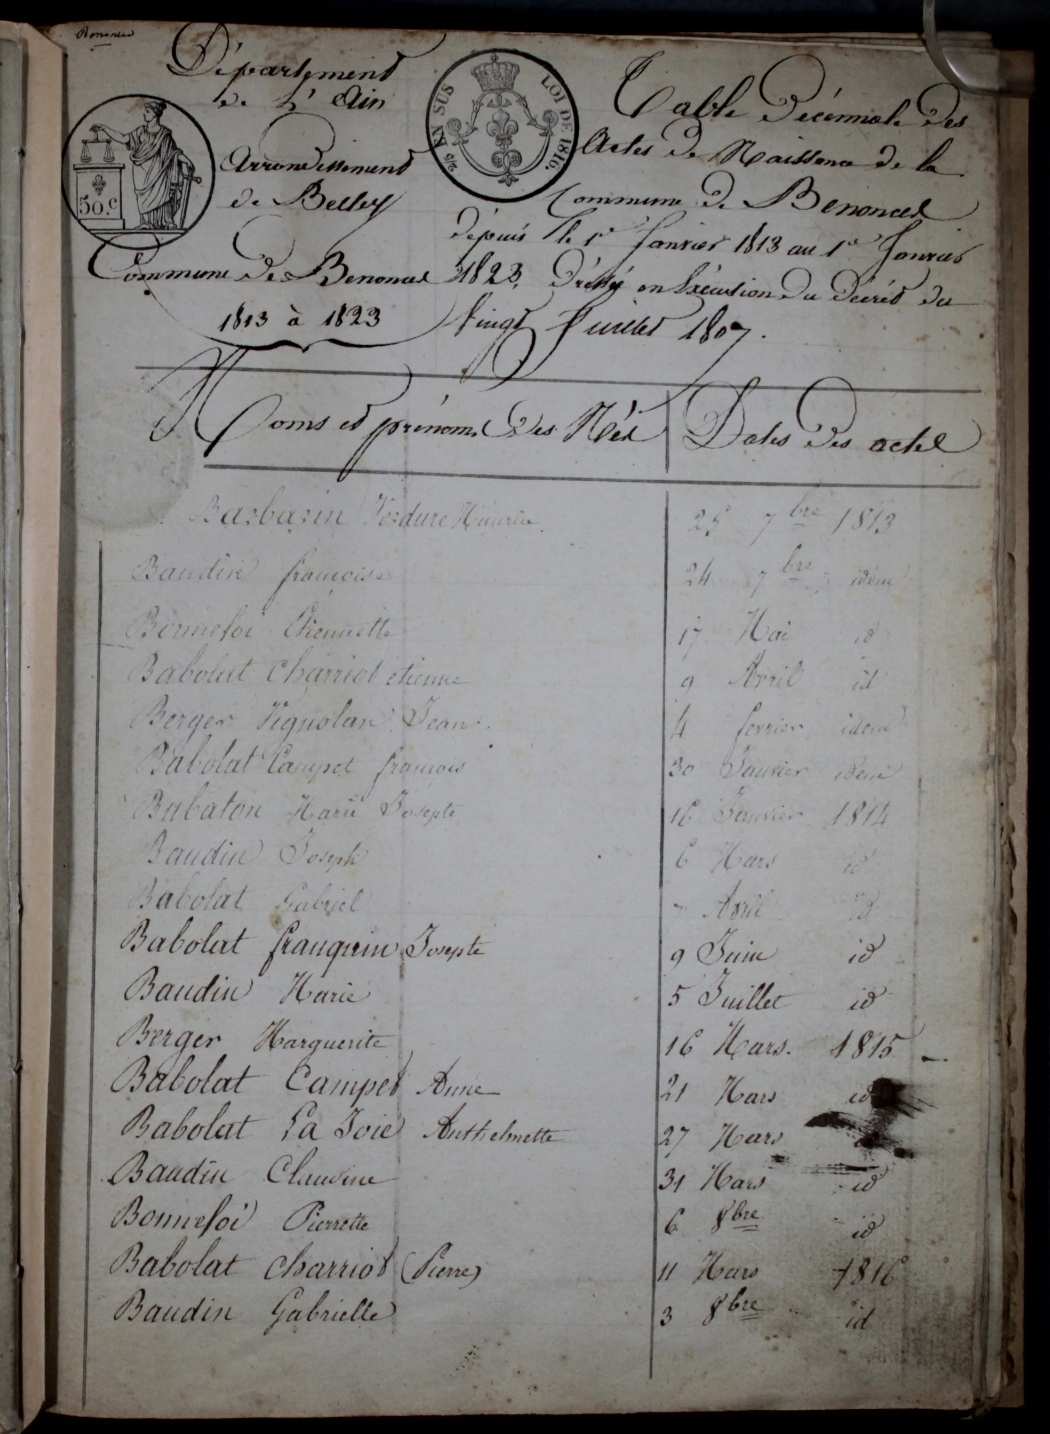 Département
de L'Ain
Arrondissement
de Belley
Commune de Benonces
1813 à 1823
50.c
EN SUS
LOI DE 1816.
Table Décennale des
Actes de Naissance de la
Commune de Benonces
depuis le 1er Janvier 1813 au 1er Janvier
1823, dressé en Exécution du décret du
Vingt Juillet 1807.
Noms et prénoms des Nés Dates des actes
Barbarin Verdure 25 7bre 1813
Baudin françoise 24 7bre idem
Bonnefoi Etiennette 17 Mai id
Babolat Charriot etienne 9 Avril id
Berger Vignolan Jean 4 fevrier idem
Babolat Campet françois 30 Janvier idem
Babaton Marie Josepte 16 Janvier 1814
Baudin Joseph 6 Mars id
Babolat Gabriel 7 Avril id
Babolat franquin Josepte 9 Juin id
Baudin Marie 5 Juillet id
Berger Marguerite 16 Mars. 1815
Babolat Campet Anne 21 Mars id
Babolat La Joie Anthelmette 27 Mars
Baudin Claudine 31 Mars id
Bonnefoi Pierrette 6 8bre id
Babolat charriot (Pierre) 11 Mars 1816
Baudin Gabrielle 3 8bre id